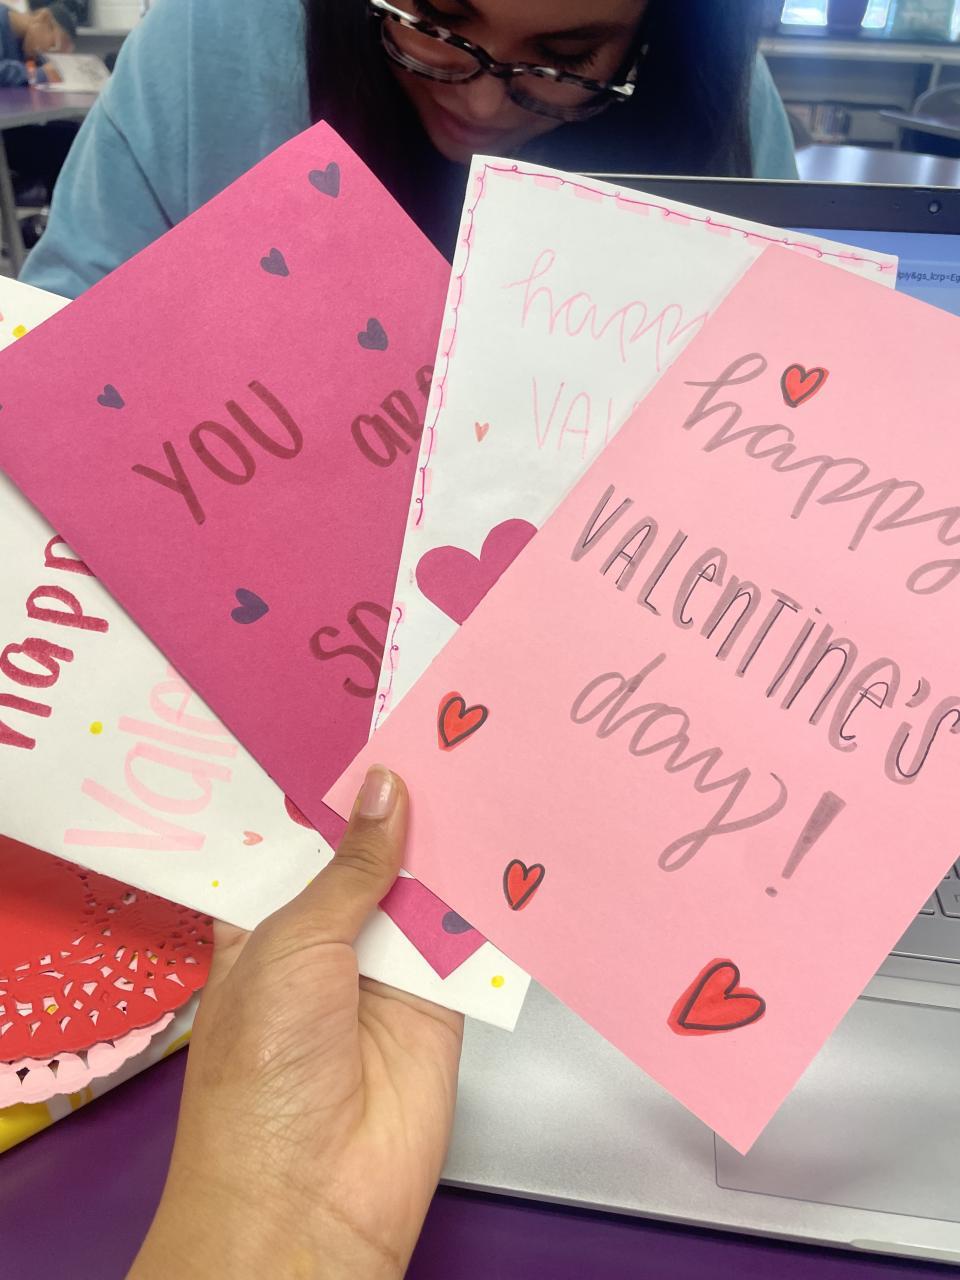 happy
VALenTine's
day!
happy
VAL
YOU are
SO
Happ
Vale